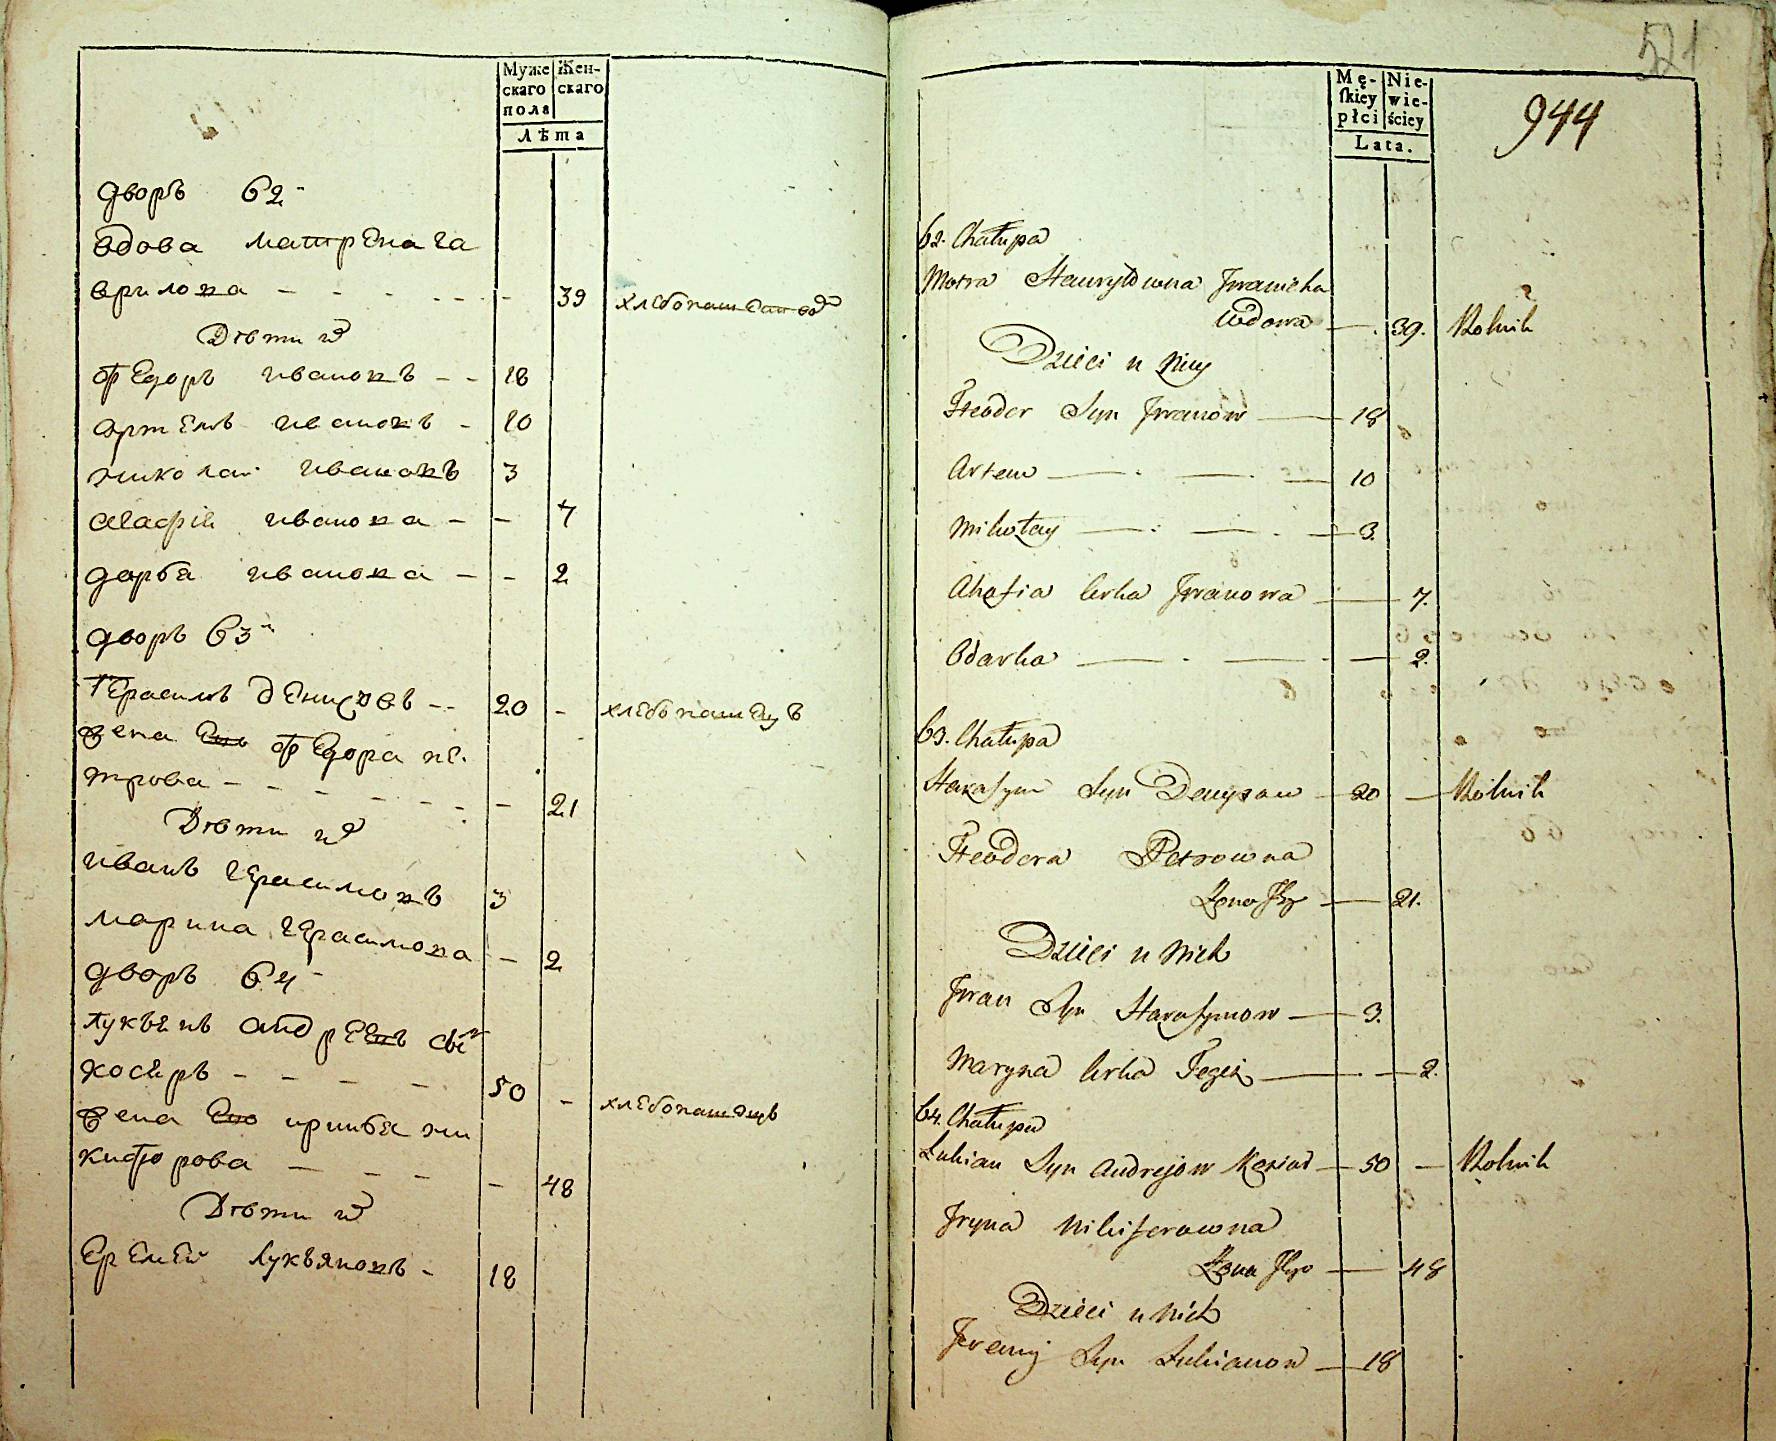 Муже
скаго
пола
Жен-
скаго
Лѣта
дворъ 62
вдова матрена га
врилова - - - - - - 39 хлебопашество
Дѣти ихъ
федоръ ивановъ - - 18
артемъ ивановъ - 10
николаи ивановъ 3
агафiя иванова - - 7
дарья иванова - - 2
дворъ 63
Герасимъ денисовъ - - 20 - хлебопашецъ
жена ево федора пе
трова - - - - - - - 21
Дѣти ихъ
иванъ герасимовъ 3
марина герасимова - 2
дворъ 64
лукъянъ андреевъ
- - - - 50 - хлебопашецъ
жена ево ирина ни
кифорова - - - - 48
Дѣти ихъ
Еремеи лукъяновъ - 18
521
944
Mę-
skiey
płci
Nie-
wie-
ściey
Lata.
62. Chałupa
Motra Hawryłowna Jwanicha
Wdowa — 39. Rolnik
Dzieci u Niey
Fteodor Syn Jwanow — 18
Artem — - — — 10
Mikołay — - — - — 3.
Ahafia Corka Jwanowa — 7.
Odarka — - — — 2.
63. Chałupa
Harasym Syn Denysow — 20 — Rolnik
Fteodora Petrowna
Żona Jego — 21.
Dzieci u Nich
Jwan Syn Harasymow — 3.
Maryna Corka Tegoż — — 2.
64. Chałupa
Lukian Syn Andrejow — 50 — Rolnik
Jryna Nikiforowna
Żona Jego — 48
Dzieci u Nich
Jeremij Syn Lukianow — 18